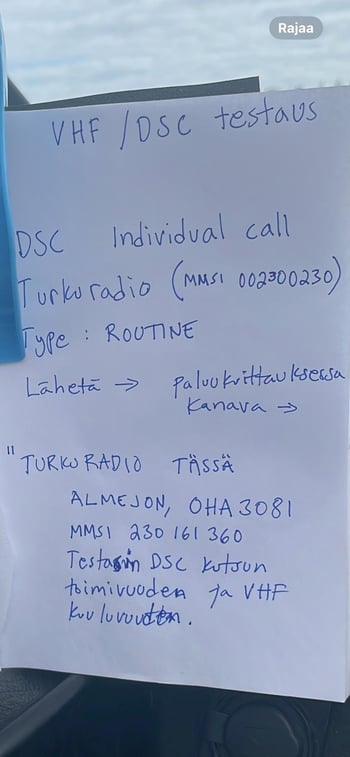 Rajaa
VHF / DSC testaus
DSC Individual call
Turku radio (MMSI 002300230)
Type : ROUTINE
Lähetä → paluukvittauksessa
kanava →
"TURKU RADIO TÄSSÄ
ALMEJON, OHA3081
MMSI 230 161 360
Testasin DSC kutsun
toimivuoden ja VHF
kuuluvuuden.